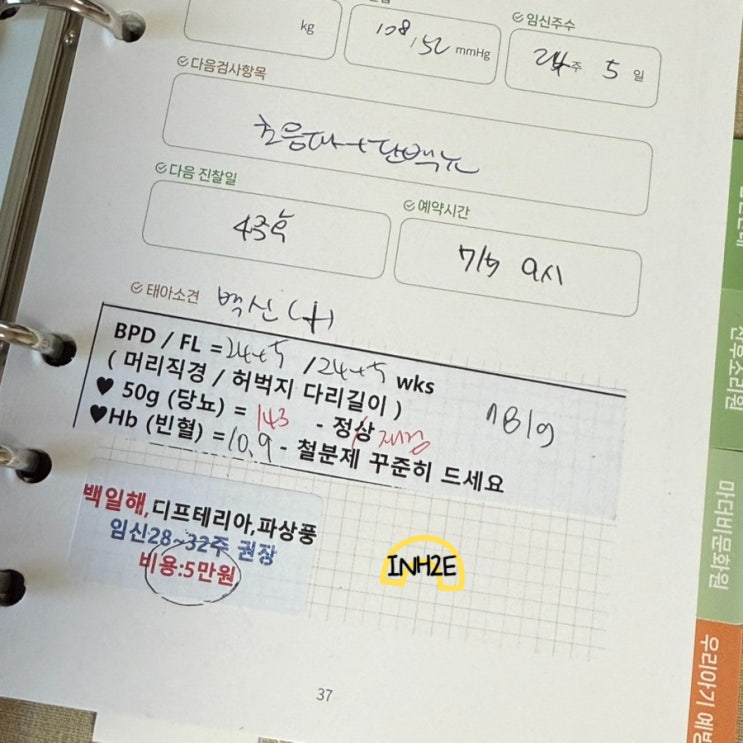 kg
108/52 mmHg
임신주수
24주 5일
다음검사항목
초음파+단백뇨
다음 진찰일
4주후
예약시간
7/5 9시
태아소견 백신(+)
BPD / FL = 24+5 / 24+5 wks
( 머리직경 / 허벅지 다리길이 )
♥ 50g (당뇨) = 143 - 정상 / 재검
♥Hb (빈혈) = 10.9 - 철분제 꾸준히 드세요
781g
백일해,디프테리아,파상풍
임신28~32주 권장
비용:5만원
INH2E
37
산후조리원
마더비문화원